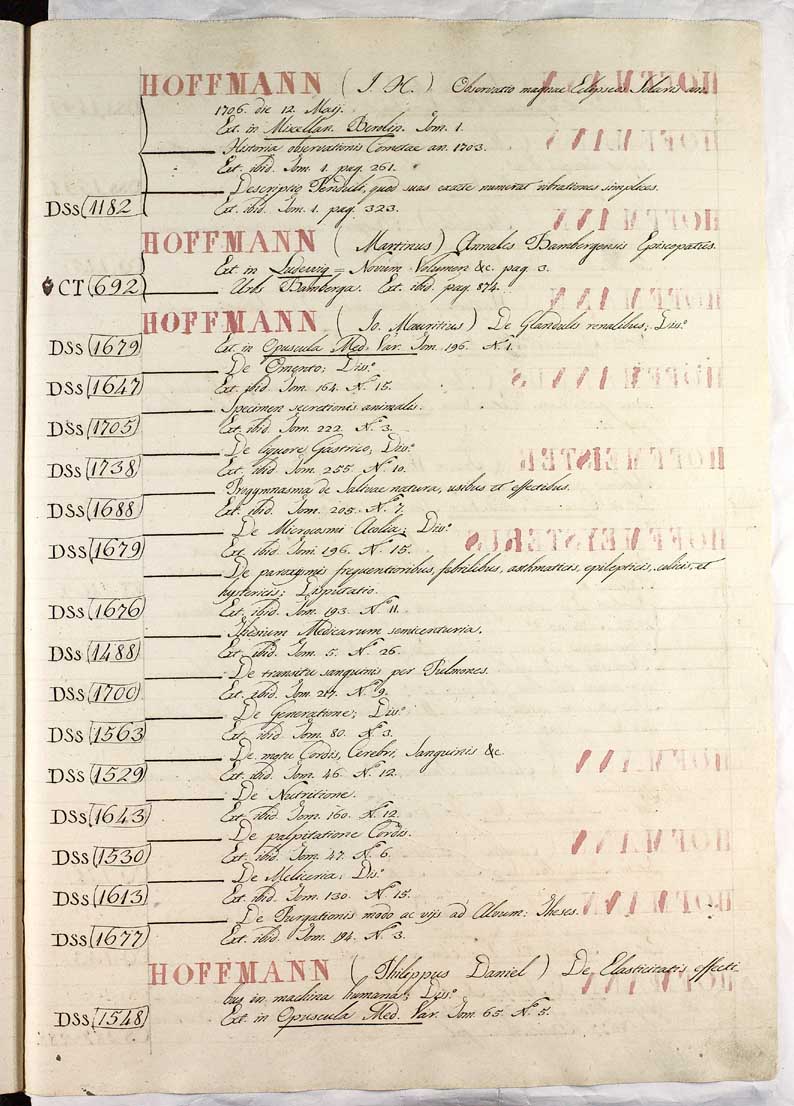 HOFFMANN (J. H.) Observatio magnae Eclypseos Solaris an.
1706. die 12 Maij.
Ext. in Miscellan. Berolin. Tom. 1.
Historia observationis Cometae an. 1703.
Ext. ibid. Tom. 1. pag. 261.
Descriptio Penduli, quod suas exacte numerat vibrationes simplices.
DSs 1182 Ext. ibid. Tom. 1. pag. 323.
HOFFMANN (Martinus) Annales Bambergensis Episcopatus.
Ext in Ludewig = Novum Volumen &c. pag. 3.
CT 692 Urbs Bamberga. Ext. ibid. pag. 874.
HOFFMANN (Jo. Mauritius) De Glandulis renalibus; Diss.
DSs 1679 Ext. in Opuscula Med. Var. Tom. 196. N.º 1.
De Omento; Diss.
DSs 1647 Ext. ibid. Tom. 164. N.º 15.
Specimen secretionis animalis.
DSs 1705 Ext. ibid. Tom. 222. N.º 3.
De liquore Gastrico; Diss.
DSs 1738 Ext. ibid. Tom. 255. N.º 10.
Progymnasma de Salivae natura, usibus et effectibus.
DSs 1688 Ext. ibid. Tom. 205. N.º 7.
De Microcosmi Diss.
DSs 1679 Ext. ibid. Tom. 196. N.º 15.
De paroxysmis frequentioribus, febrilibus, asthmaticis, epilepticis, colicis, et
hystericis; Disputatio.
DSs 1676 Ext. ibid. Tom. 193. N.º 11.
Thesium Medicarum semicenturia.
DSs 1488 Ext. ibid. Tom. 5. N.º 26.
De transitu sanguinis per Pulmones.
DSs 1700 Ext. ibid. Tom. 217. N.º 9.
De Generatione; Diss.
DSs 1563 Ext. ibid. Tom. 80. N.º 3.
De motu Cordis, Cerebri, Sanguinis &c
DSs 1529 Ext. ibid. Tom. 46. N.º 12.
De Nutritione.
DSs 1643 Ext. ibid. Tom. 160. N.º 12.
De palpitatione Cordis.
DSs 1530 Ext. ibid. Tom. 47. N.º 6.
De Meliceria; Diss.
DSs 1613 Ext. ibid. Tom. 130. N.º 15.
De Purgationis modo ac vijs ad Alvum: Theses.
DSs 1677 Ext. ibid. Tom. 194. N.º 3.
HOFFMANN (Philippus Daniel) De Elasticitatis effecti
bus in machina humana; Diss.
DSs 1548 Ext. in Opuscula Med. Var. Tom. 65. N.º 5.